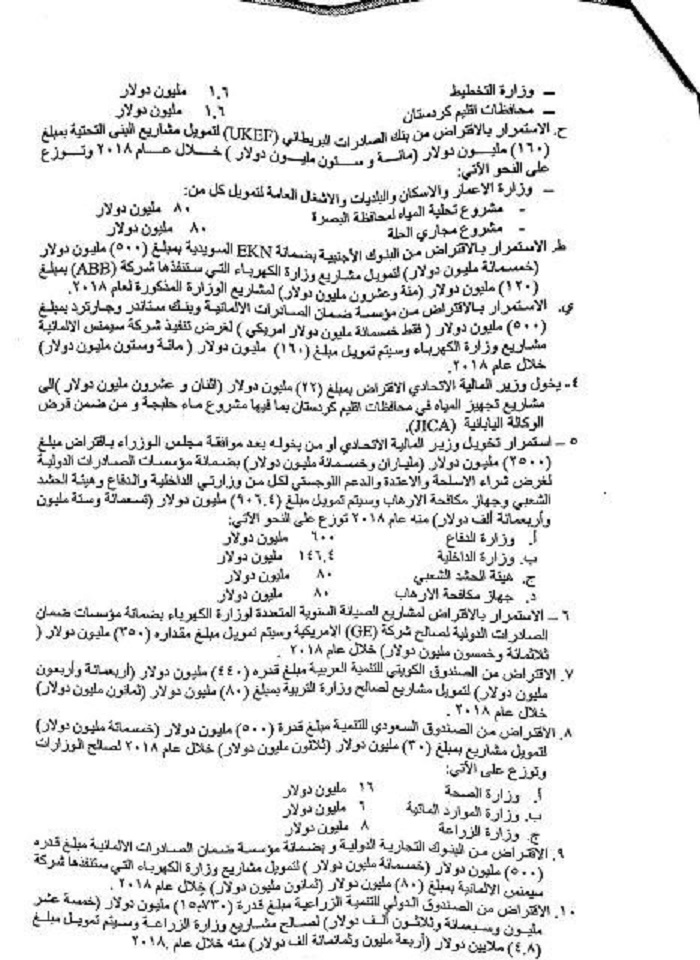 – وزارة التخطيط ١,٦ مليون دولار
– محافظات اقليم كردستان ١,٦ مليون دولار
ح. الاستمرار بالاقتراض من بنك الصادرات البريطاني (UKEF) لتمويل مشاريع البنى التحتية بمبلغ
(١٦٠) مليون دولار (مائة و ستون مليون دولار ) خلال عام ٢٠١٨ وتوزع
على النحو الآتي:
– وزارة الاعمار والاسكان والبلديات والاشغال العامة لتمويل كل من:
- مشروع تحلية المياه لمحافظة البصرة ٨٠ مليون دولار
- مشروع مجاري الحلة ٨٠ مليون دولار
ط. الاستمرار بالاقتراض من البنوك الأجنبية بضمانة EKN السويدية بمبلغ (٥٠٠) مليون دولار
(خمسمائة مليون دولار) لتمويل مشاريع وزارة الكهرباء التي ستنفذها شركة (ABB) بمبلغ
(١٢٠) مليون دولار (مئة وعشرون مليون دولار) لمشاريع الوزارة المذكورة لعام ٢٠١٨.
ي. الاستمرار بالاقتراض من مؤسسة ضمان الصادرات الالمانية وبنك ستاندر وجارترد بمبلغ
(٥٠٠) مليون دولار ( فقط خمسمائة مليون دولار امريكي ) لغرض تنفيذ شركة سيمنس الالمانية
مشاريع وزارة الكهرباء وسيتم تمويل مبلغ (١٦٠) مليون دولار ( مائة وستون مليون دولار)
خلال عام ٢٠١٨.
٤- يخول وزير المالية الاتحادي الاقتراض بمبلغ (٢٢) مليون دولار (اثنان و عشرون مليون دولار )الى
مشاريع تجهيز المياه في محافظات اقليم كردستان بما فيها مشروع ماء حلبجة و من ضمن قرض
الوكالة اليابانية (JICA).
٥ – استمرار تخويل وزير المالية الاتحادي او من يخوله بعد موافقة مجلس الوزراء باقتراض مبلغ
(٢٥٠٠) مليون دولار (ملياران وخمسمائة مليون دولار) بضمانة مؤسسات الصادرات الدولية
لغرض شراء الاسلحة والاعتدة والدعم اللوجستي لكل من وزارتي الداخلية والدفاع وهيئة الحشد
الشعبي وجهاز مكافحة الارهاب وسيتم تمويل مبلغ (٩٠٦,٤) مليون دولار (تسعمائة وستة مليون
وأربعمائة ألف دولار) منه عام ٢٠١٨ توزع على النحو الآتي:
أ. وزارة الدفاع ٦٠٠ مليون دولار
ب. وزارة الداخلية ١٤٦,٤ مليون دولار
ج. هيئة الحشد الشعبي ٨٠ مليون دولار
د. جهاز مكافحة الارهاب ٨٠ مليون دولار
٦ – الاستمرار بالاقتراض لمشاريع الصيانة السنوية المتعددة لوزارة الكهرباء بضمانة مؤسسات ضمان
الصادرات الدولية لصالح شركة (GE) الامريكية وسيتم تمويل مبلغ مقداره (٣٥٠) مليون دولار (
ثلاثمائة وخمسون مليون دولار) خلال عام ٢٠١٨ .
٧. الاقتراض من الصندوق الكويتي للتنمية العربية مبلغ قدره (٤٤٠) مليون دولار (أربعمائة وأربعون
مليون دولار) لتمويل مشاريع لصالح وزارة التربية بمبلغ (٨٠) مليون دولار (ثمانون مليون دولار)
خلال عام ٢٠١٨ .
٨. الاقتراض من الصندوق السعودي للتنمية مبلغ قدرة (٥٠٠) مليون دولار (خمسمائة مليون دولار)
لتمويل مشاريع بمبلغ (٣٠) مليون دولار (ثلاثون مليون دولار) خلال عام ٢٠١٨ لصالح الوزارات
وتوزع على الآتي:
أ. وزارة الصحة ١٦ مليون دولار
ب. وزارة الموارد المائية ٦ مليون دولار
ج. وزارة الزراعة ٨ مليون دولار
٩. الاقتراض من البنوك التجارية الدولية و بضمانة مؤسسة ضمان الصادرات الالمانية مبلغ قدره
(٥٠٠) مليون دولار (خمسمائة مليون دولار ) لتمويل مشاريع وزارة الكهرباء التي ستنفذها شركة
سيمنس الالمانية بمبلغ (٨٠) مليون دولار (ثمانون مليون دولار) خلال عام ٢٠١٨ .
١٠. الاقتراض من الصندوق الدولي للتنمية الزراعية مبلغ قدرة (١٥,٧٣٠) مليون دولار (خمسة عشر
مليون وسبعمائة وثلاثون ألف دولار) لصالح مشاريع وزارة الزراعة وسيتم تمويل مبلغ
(٤,٨) ملايين دولار (أربعة مليون وثمانمائة ألف دولار) منه خلال عام ٢٠١٨.